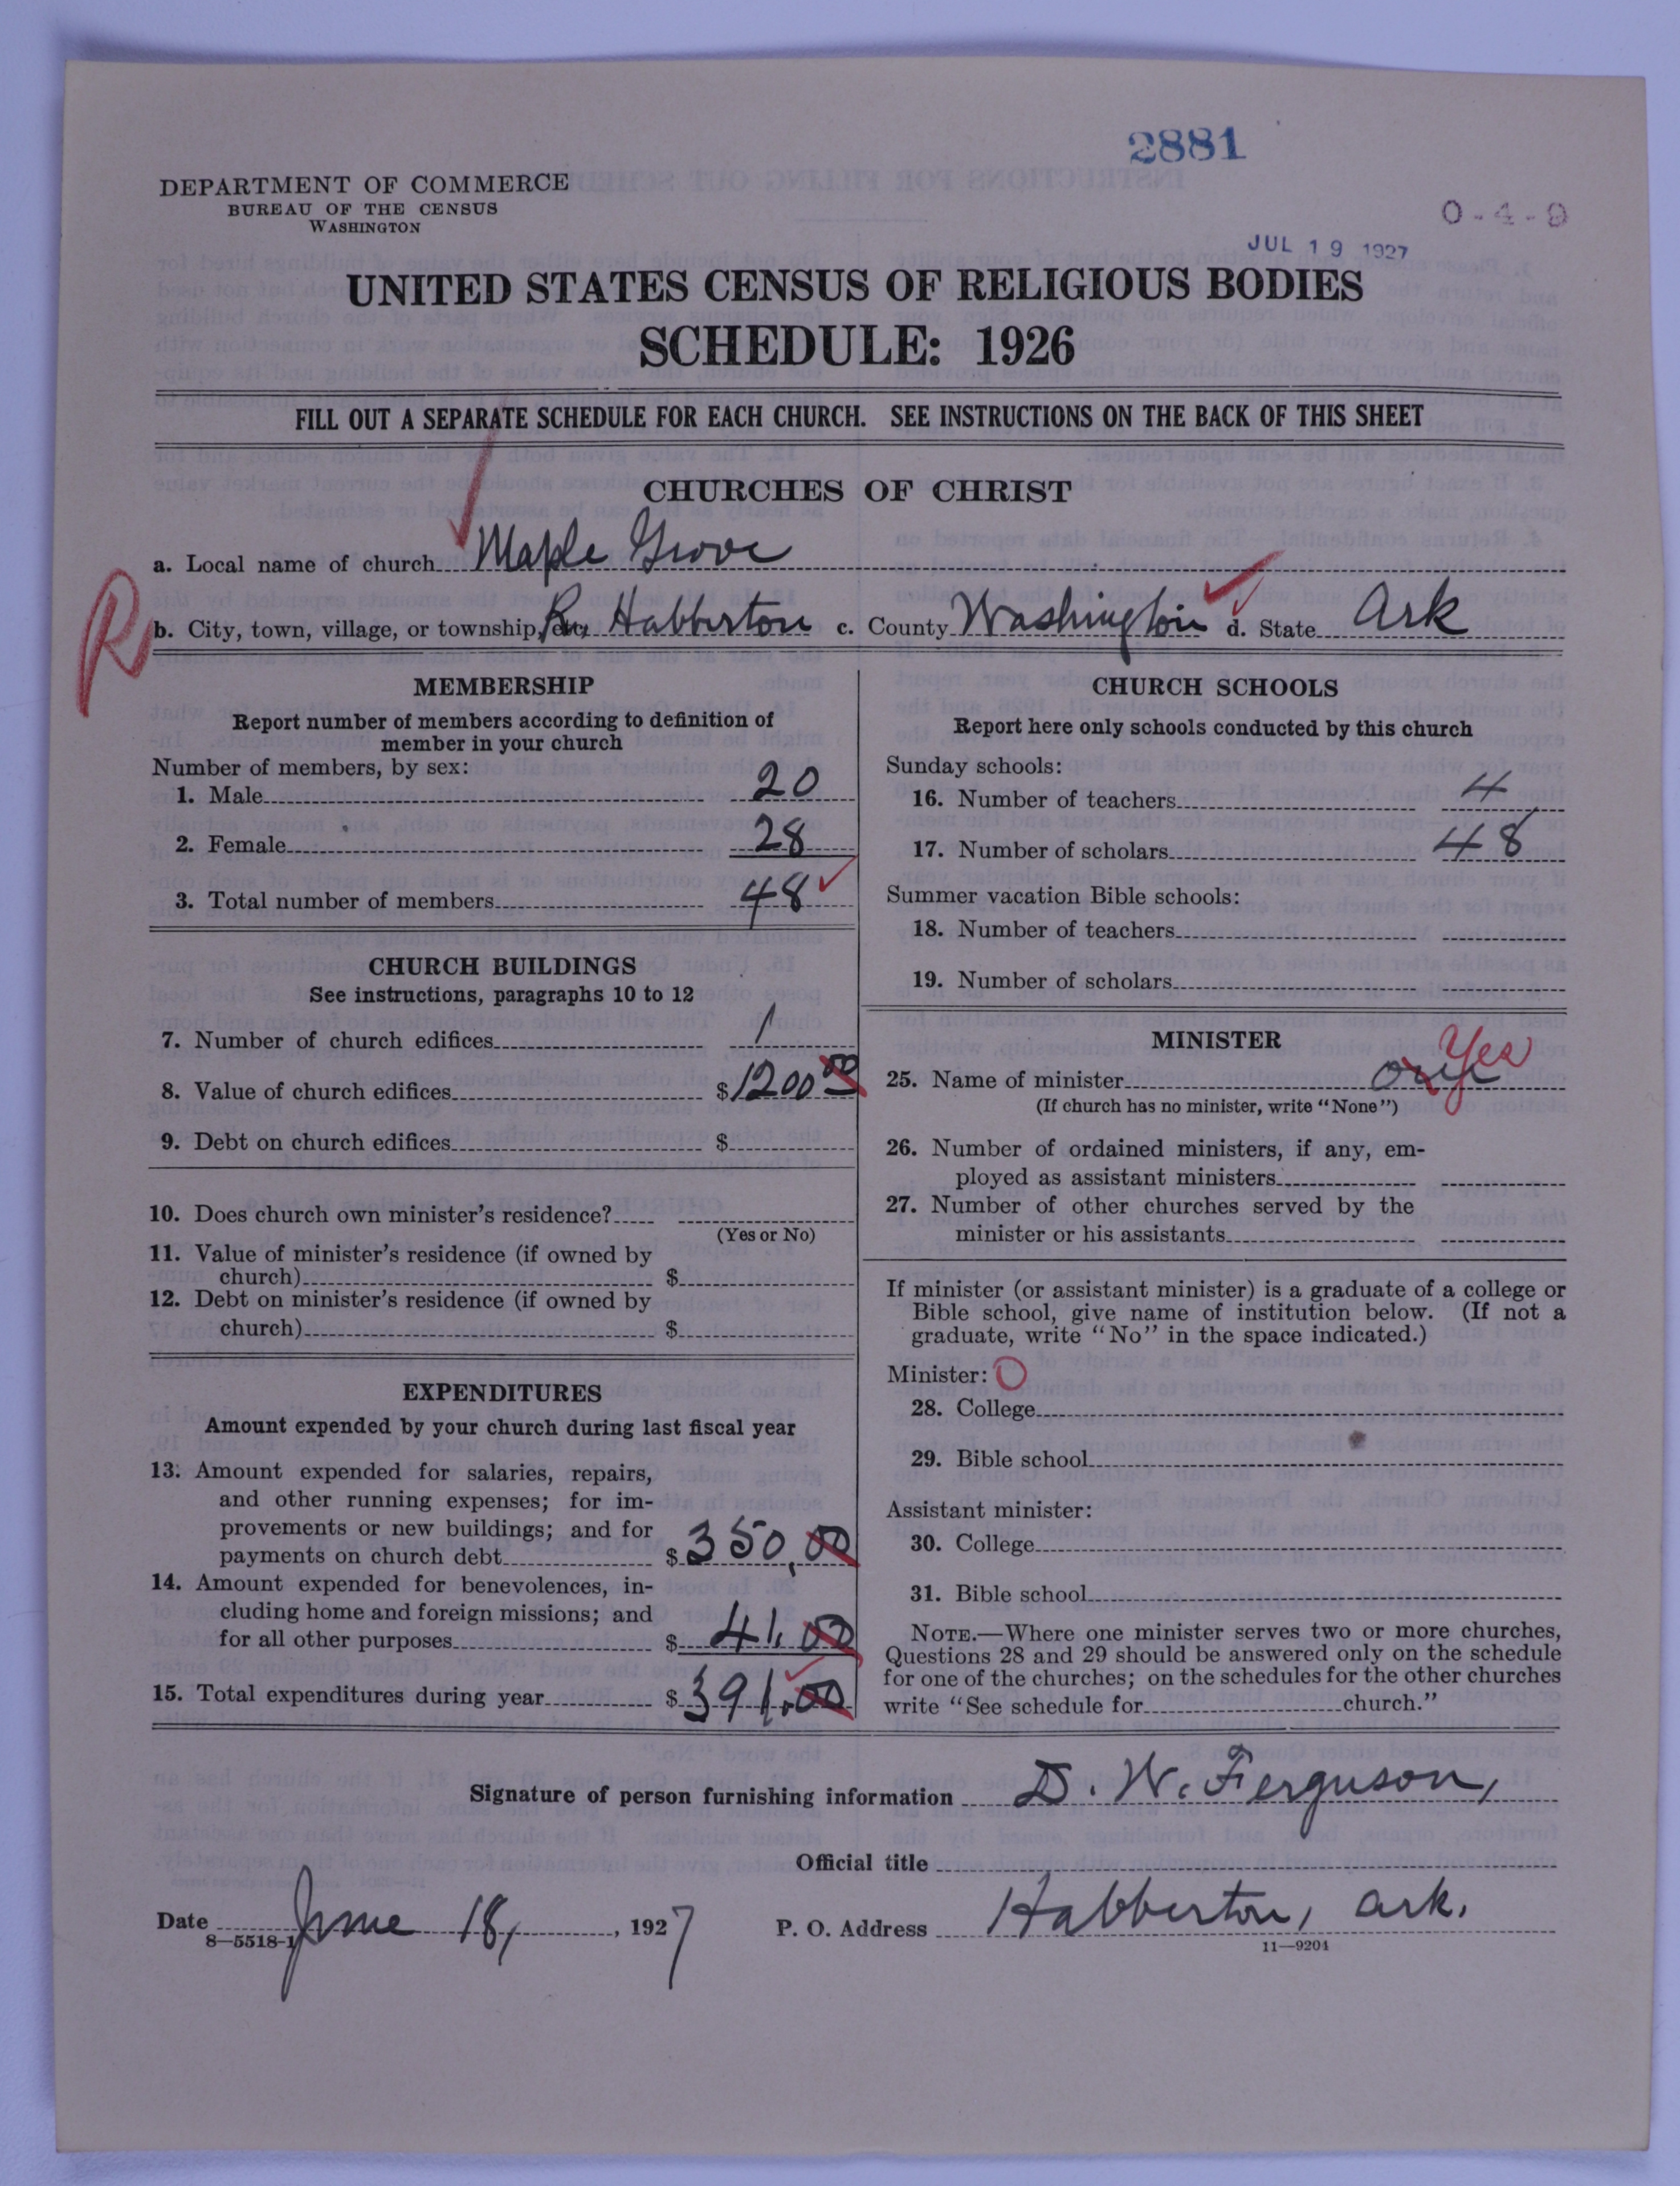 2881
DEPARTMENT OF COMMERCE
BUREAU OF THE CENSUS
WASHINGTON
0-4-9
JUL 19 1927
UNITED STATES CENSUS OF RELIGIOUS BODIES
SCHEDULE: 1926
FILL OUT A SEPARATE SCHEDULE FOR EACH CHURCH. SEE INSTRUCTIONS ON THE BACK OF THIS SHEET
CHURCHES OF CHRIST
a. Local name of church Maple Grove
R
b. City, town, village, or township, etc. Habberton c. County Washington d. State Ark
MEMBERSHIP
Report number of members according to definition of
member in your church
Number of members, by sex:
1. Male 20
2. Female 28
3. Total number of members 48
CHURCH BUILDINGS
See instructions, paragraphs 10 to 12
7. Number of church edifices 1
8. Value of church edifices $1200 00
9. Debt on church edifices $
10. Does church own minister's residence?
(Yes or No)
11. Value of minister's residence (if owned by
church) $
12. Debt on minister's residence (if owned by
church) $
EXPENDITURES
Amount expended by your church during last fiscal year
13. Amount expended for salaries, repairs,
and other running expenses; for im-
provements or new buildings; and for
payments on church debt $350,00
14. Amount expended for benevolences, in-
cluding home and foreign missions; and
for all other purposes $41.00
15. Total expenditures during year $391.00
CHURCH SCHOOLS
Report here only schools conducted by this church
Sunday schools:
16. Number of teachers 4
17. Number of scholars 48
Summer vacation Bible schools:
18. Number of teachers
19. Number of scholars
MINISTER
Yes
25. Name of minister one
(If church has no minister, write "None")
26. Number of ordained ministers, if any, em-
ployed as assistant ministers
27. Number of other churches served by the
minister or his assistants
If minister (or assistant minister) is a graduate of a college or
Bible school, give name of institution below. (If not a
graduate, write "No" in the space indicated.)
Minister: O
28. College
29. Bible school
Assistant minister:
30. College
31. Bible school
NOTE.—Where one minister serves two or more churches,
Questions 28 and 29 should be answered only on the schedule
for one of the churches; on the schedules for the other churches
write "See schedule for church."
Signature of person furnishing information D. W. Ferguson,
Official title
Date June 18, 1927 P. O. Address Habberton, Ark.
8—5518-1
11—9204